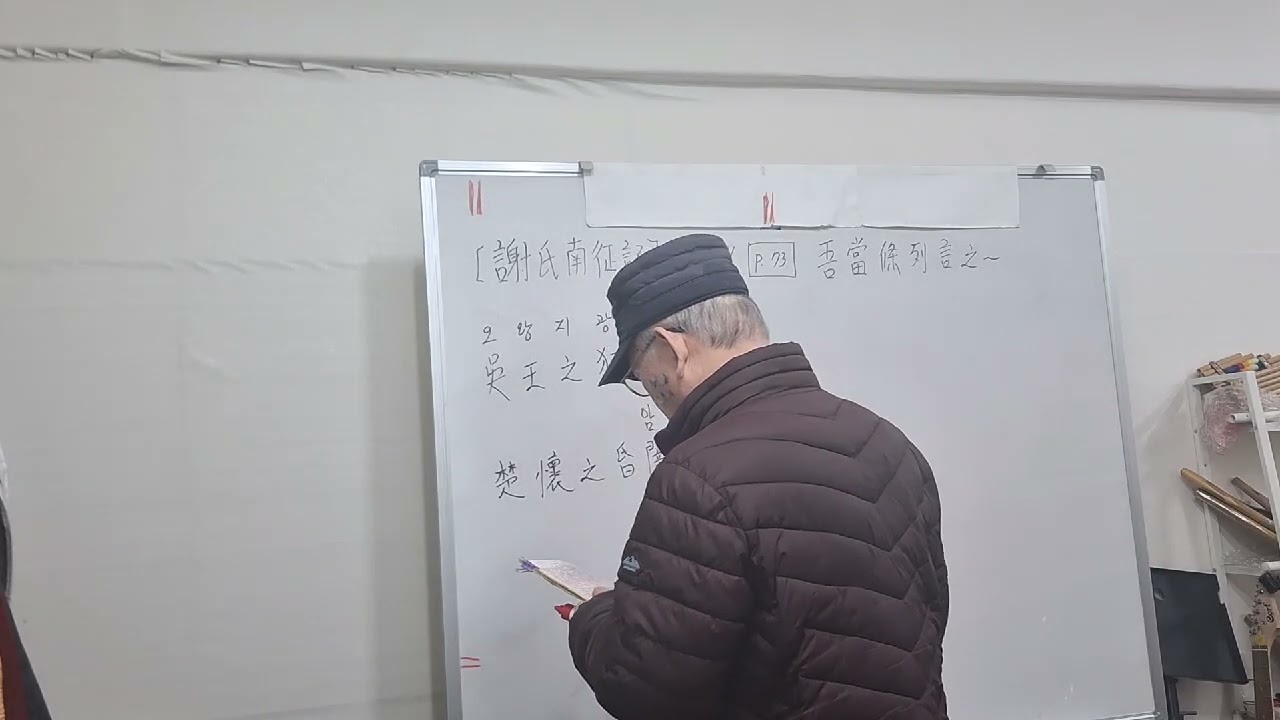 [謝氏南征記 P.73 吾當條列言之~
오 왕 지 광
吳王之狂
암
楚懷之昏闇